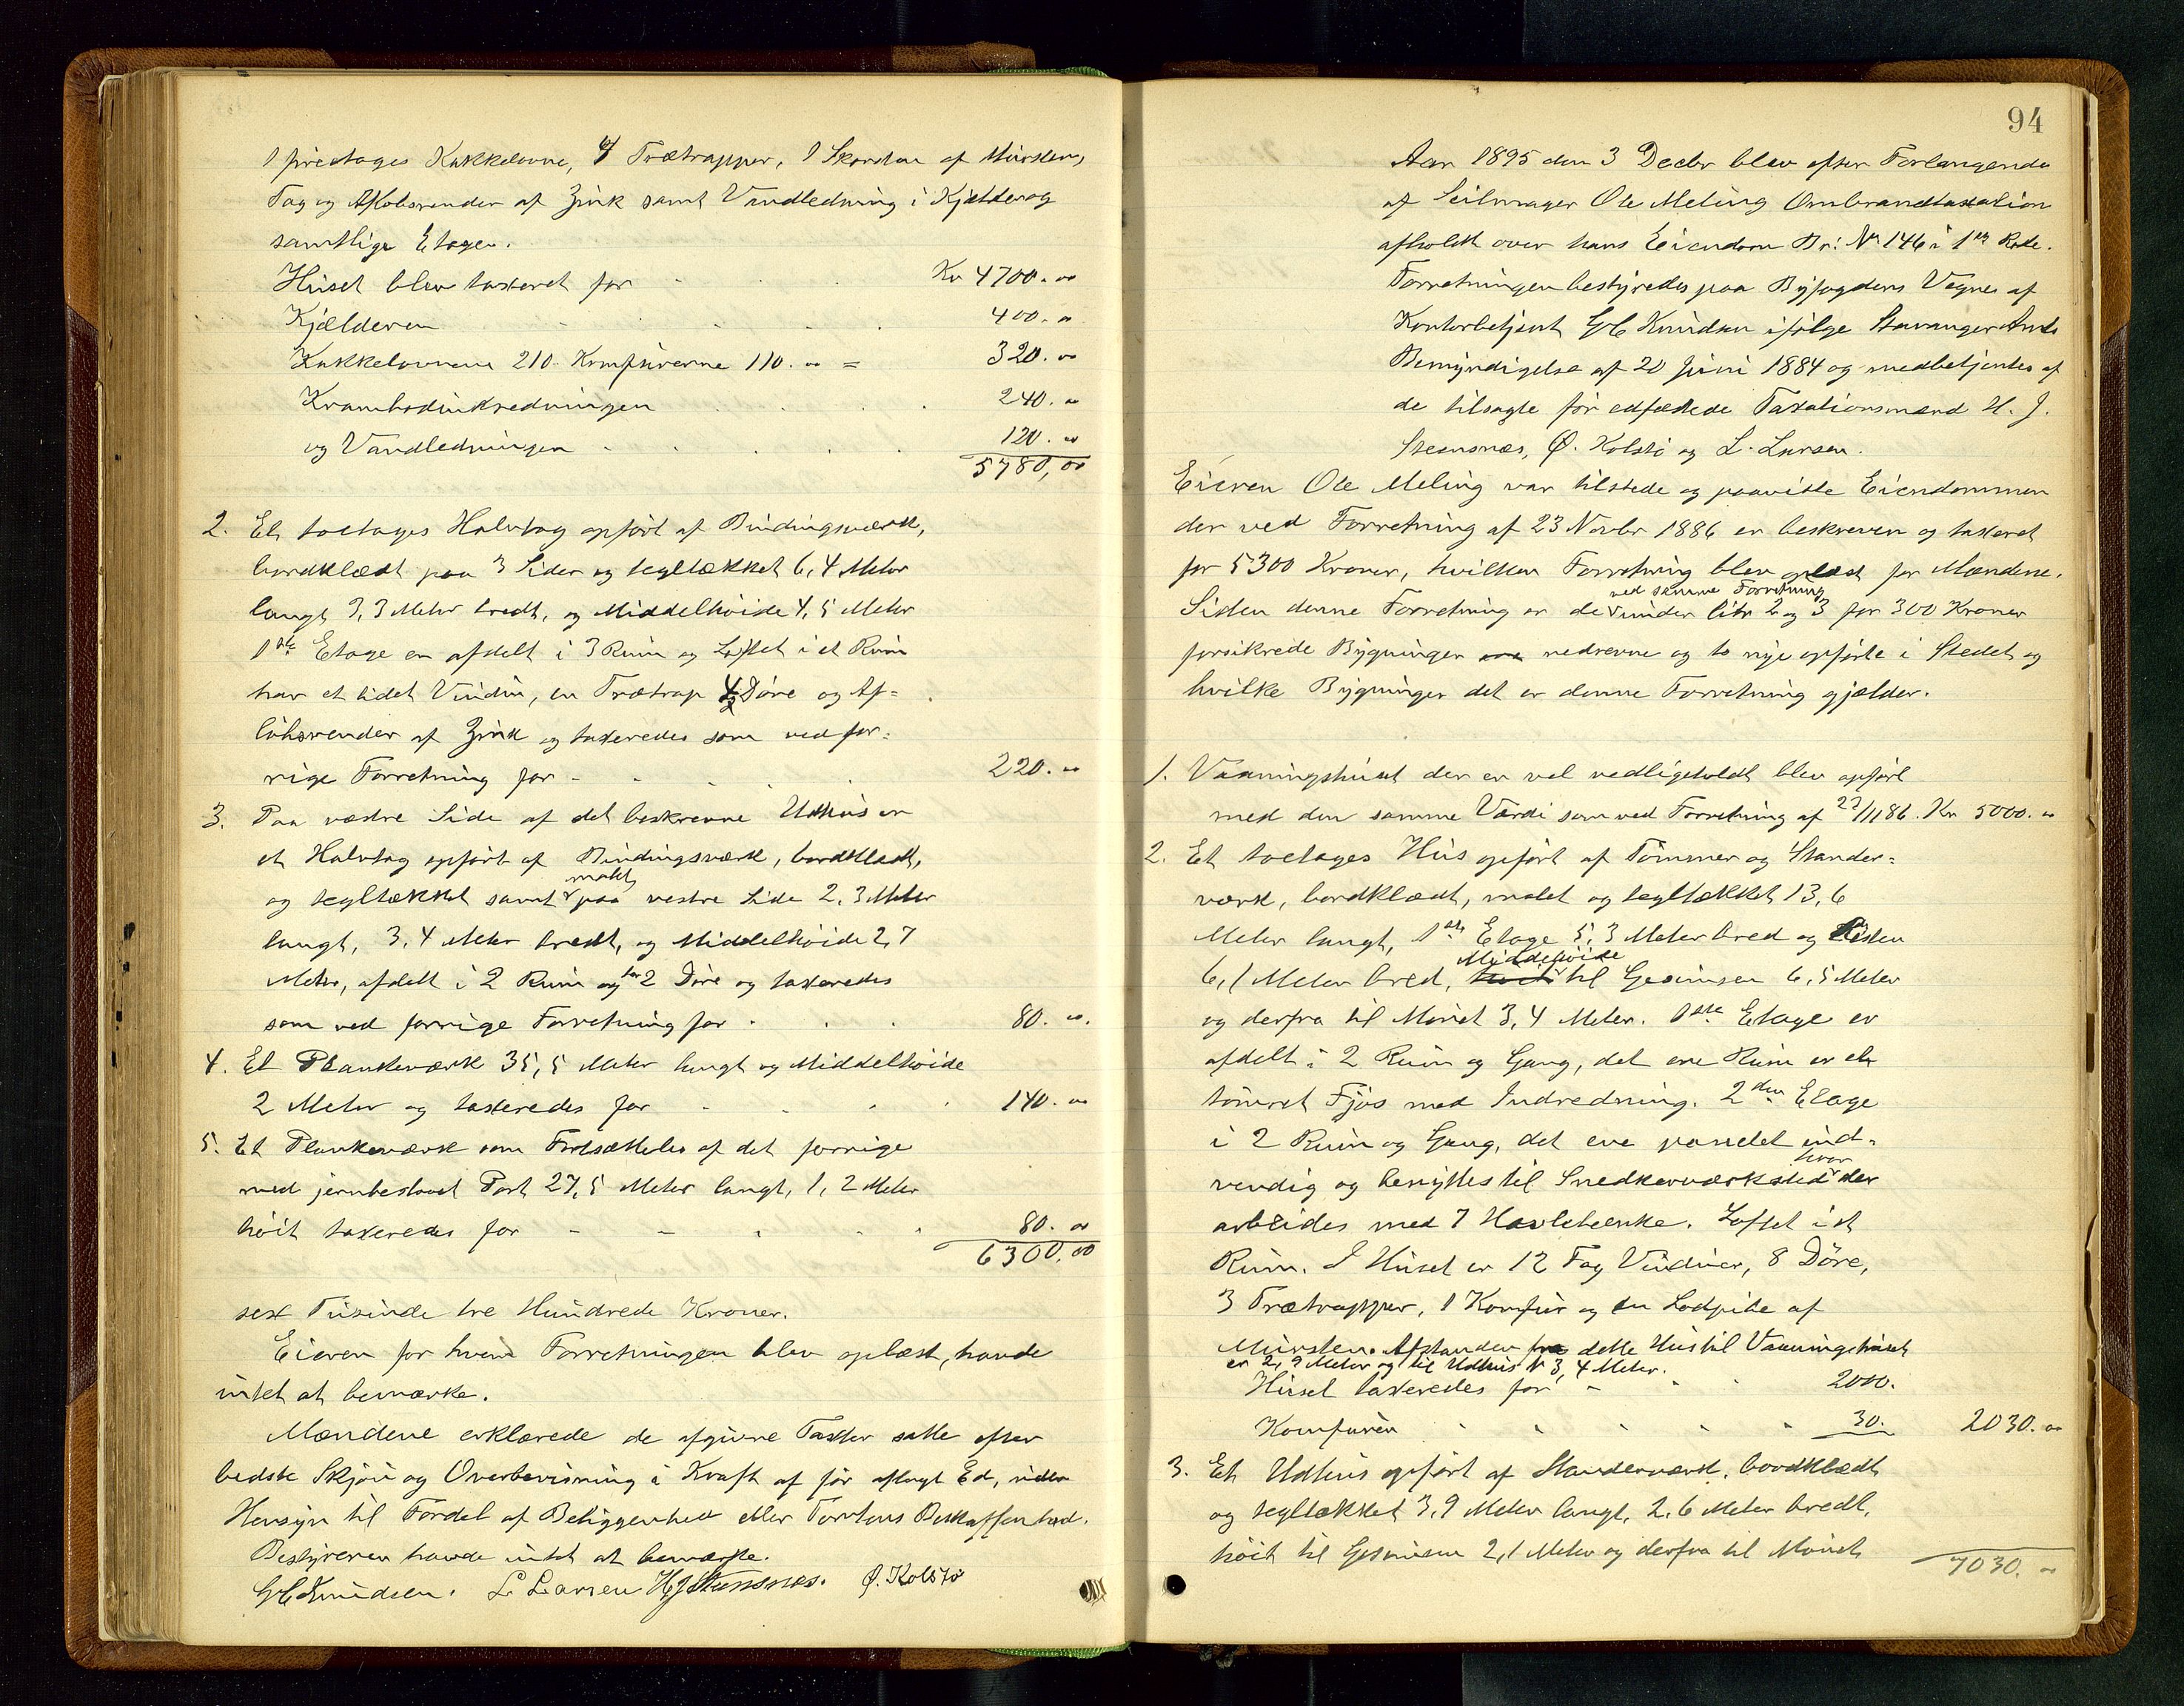 1 treetages Kakkelovne, 4 Trætrapper, 1 Skorsten af Mursten,
Tag og Afløbsrender af Zink samt Vandledning i Kjælder og
samtlige Etager.
Huset blev taxeret for - Kr 4700.00
Kjælderen 400.00
Kakkelovnene 210. Komfurerne 110.00 = 320.00
Krambodindredningen 240.00
og Vandledningen - 120.00
5780,00
2. Et toetages Halvtag opført af Bindingsværk,
bordklædt paa 3 Sider og tegltækket 6,4 Meter
langt 3,3 Meter bredt, og Middelhöide 4,5 Meter
1ste Etage er afdelt i 3 Rum og Loftet i et Rum
har et lidet Vindu, en Trætrap 4 Döre og Af=
löbsrender af Zink og taxeredes som ved for=
rige Forretning for - 220.00
3. Paa vestre Side af det beskrevne Udhus er
et Halvtag opført af Bindingsværk, bordklædt,
og tegltækket samt malt paa vestre Side 2,3 Meter
langt, 3,4 Meter bredt, og Middelhöide 2,7
Meter, afdelt i 2 Rum og har 2 Döre og taxeredes
som ved forrige Forretning for - 80.00.
4. Et Plankeværk 35,5 Meter langt og Middelhöide
2 Meter og taxeredes for - 140.00
5. Et Plankeværk som Fortsættelse af det forrige
med jernbeslaaet Port 27,5 Meter langt, 1,2 Meter
höit taxeredes for - - 80.00
6300.00
sex Tusinde tre Hundrede Kroner.
Eieren for hvem Forretningen blev oplæst, havde
intet at bemærke.
Mændene erklærede de afgivne Taxter satte efter
bedste Skjön og Overbevisning i Kraft af för aflagt Ed, uden
Hensyn til Fordel af Beliggenhed eller Tomtens Beskaffenhed.
Bestyreren havde intet at bemærke.
G C Knudsen. L Larsen HJ Steensnæs. Ø. Kolstø
94
Aar 1895 den 3 Decbr blev efter Forlangende
af Seilmager Ole Meling Ombrandtaxation
afholdt over hans Eiendom Br: No 146 i 1ste Rode.
Forretningen bestyredes paa Byfogdens Vegne af
Kontorbetjent G C Knudsen ifölge Stavanger Amts
Bemyndigelse af 20 Juni 1884 og medbetjentes af
de tilsagte för edfæstede Taxationsmænd H. J.
Steensnæs, Ø. Kolstö og L. Larsen.
Eieren Ole Meling var tilstede og paaviste Eiendommen
der ved Forretning af 23 Novbr 1886 er beskreven og taxeret
for 5300 Kroner, hvilken Forretning blev oplæst for Mændene.
Siden denne Forretning er de ved samme Forretning under litr 2 og 3 for 300 Kroner
forsikrede Bygninger nedrevne og to nye opförte i Stedet og
hvilke Bygninger det er denne Forretning gjælder.
1. Vaaningshuset der er vel vedligeholdt blev opfört
med den samme Værdi som ved Forretning af 23/11 86. Kr 5000.00
2. Et toetages Hus opfört af Tömmer og Stander=
værk, bordklædt, malet og tegltækket 13,6
Meter langt, 1ste Etage 5,3 Meter bred og Resten
6,1 Meter bred, Middelhöide til Gesimsen 6,5 Meter
og derfra til Mönet 3,4 Meter. 1ste Etage er
afdelt i 2 Rum og Gang, det ene Rum er et
tömret Fjös med Indredning. 2den Etage
i 2 Rum og Gang, det ene panelet ind=
vendig og benyttes til Snedkerværksted hvor der
arbeides med 7 Hövlebænke. Loftet i et
Rum. I Huset er 12 Fag Vinduer, 8 Döre,
3 Trætrapper, 1 Komfur og en Lodpibe af
Mursten. Afstanden fra dette Hus til Vaaningshuset
er 2,9 Meter og til Udhus No 3, 4 Meter.
Huset taxeredes for - 2000.
Komfuren 30. 2030.00
3. Et Udhus opfört af Standerværk, bordklædt
og tegltækket 3,9 Meter langt, 2,6 Meter bredt,
höit til Gesimsen 2,1 Meter og derfra til Mönet
7030.00